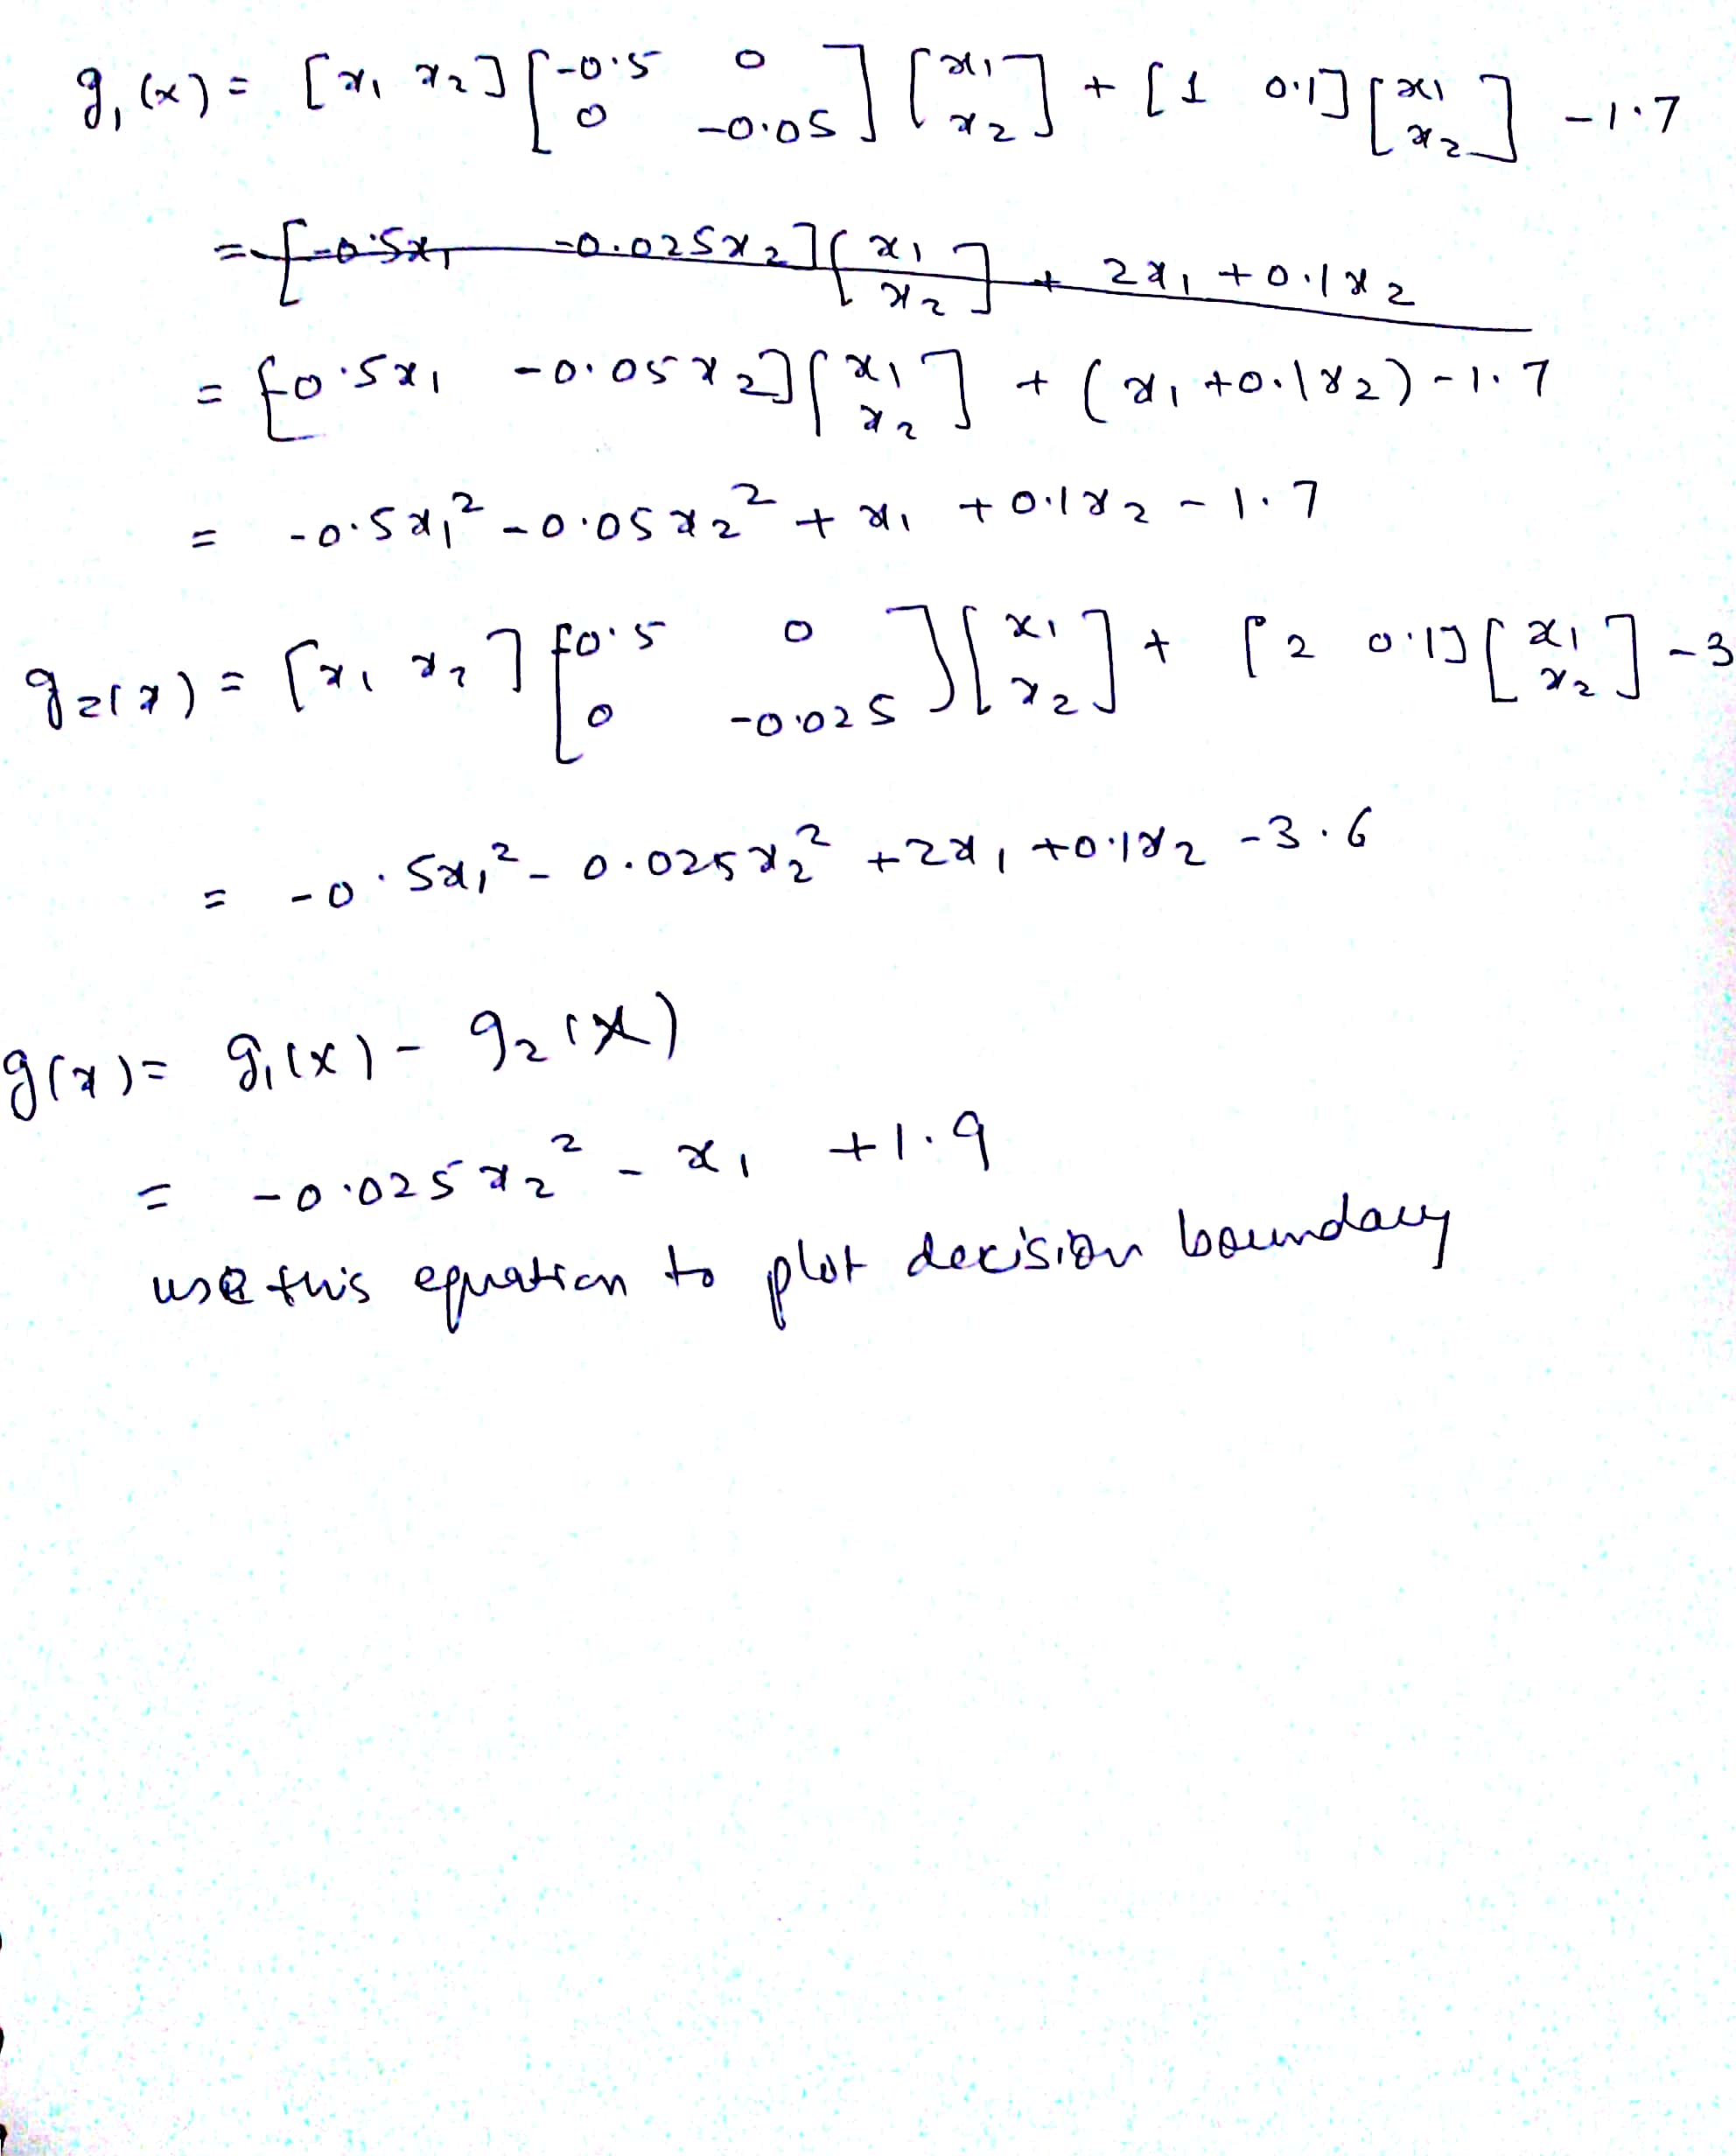 g₁(x) = [x₁ x₂] [-0.5 0 0 -0.05] [x₁ x₂] + [1 0.1] [x₁ x₂] - 1.7
= [-0.5x₁ -0.025x₂] [x₁ x₂] + 2x₁ + 0.1x₂
= [-0.5x₁ -0.05x₂] [x₁ x₂] + (x₁ + 0.1x₂) - 1.7
= -0.5x₁² - 0.05x₂² + x₁ + 0.1x₂ - 1.7
g₂(x) = [x₁ x₂] [-0.5 0 0 -0.025] [x₁ x₂] + [2 0.1] [x₁ x₂] - 3
= -0.5x₁² - 0.025x₂² + 2x₁ + 0.1x₂ - 3.6
g(x) = g₁(x) - g₂(x)
= -0.025x₂² - x₁ + 1.9
use this equation to plot decision boundary